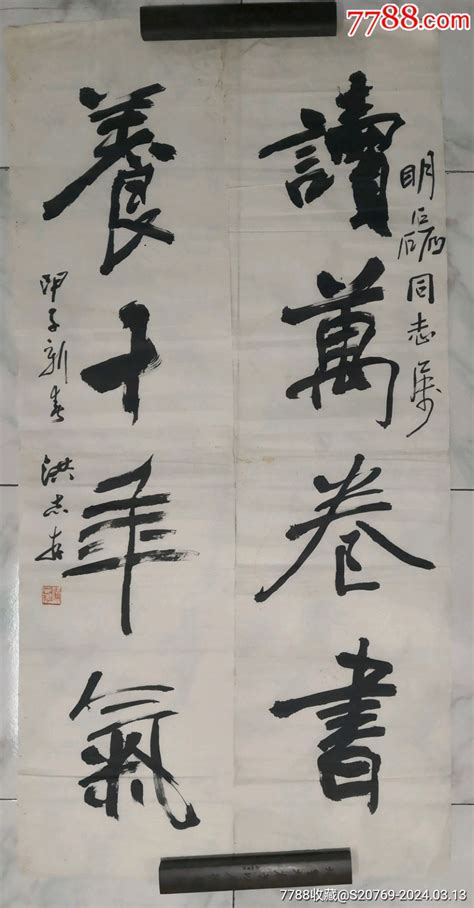 7788.com
明同志属
讀萬卷書
養十年氣
甲子新春 洪志
7788收藏@S20769-2024.03.13